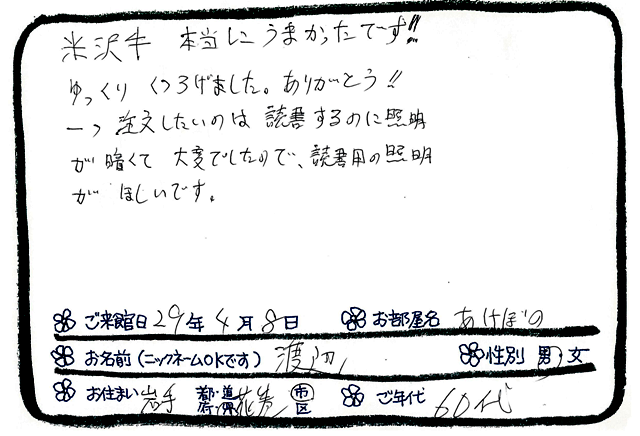 米沢牛 本当にうまかったでーす!!
ゆっくり くつろげました。ありがとう!!
一つ 注文したいのは 読書するのに照明
が 暗くて 大変でしたので、読書用の照明
が ほしいです。
ご来館日 29年 4月 8日 お部屋名 あけぼの
お名前(ニックネームOKです) 渡辺 性別 男 女
お住まい 岩手 都・道・府・県 花巻 市 区 ご年代 60代